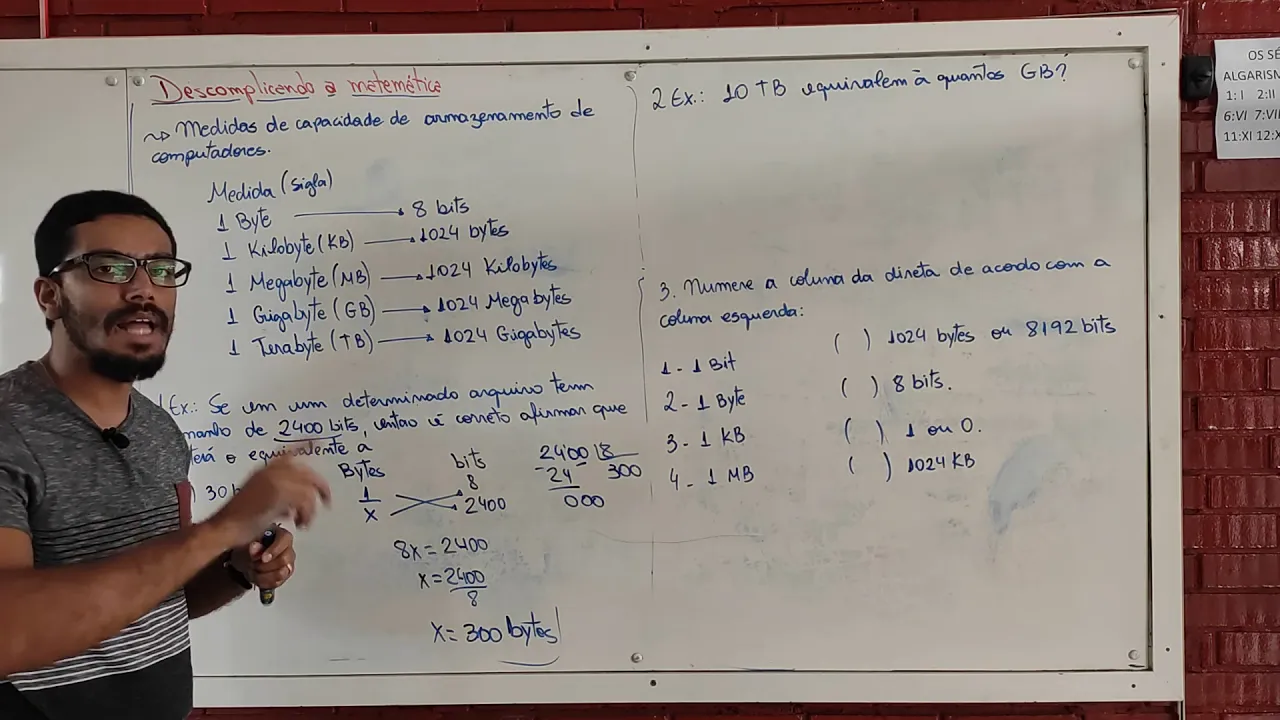 Descomplicando a matemática
~> Medidas de capacidade de armazenamento de
computadores.
Medida (sigla)
1 Byte → 8 bits
1 Kilobyte (KB) → 1024 bytes
1 Megabyte (MB) → 1024 Kilobytes
1 Gigabyte (GB) → 1024 Megabytes
1 Terabyte (TB) → 1024 Gigabytes
Ex.: Se em um determinado arquivo tem
de 2400 bits, então é correto afirmar que
o equivalente a
30
Bytes bits
1 8
x 2400
8x = 2400
x = 2400
8
x = 300 bytes
2400 8
-24 300
000
2 Ex.: 10 TB equivalem à quantos GB?
3. Numere a coluna da direta de acordo com a
coluna esquerda:
1 - 1 Bit
2 - 1 Byte
3 - 1 KB
4 - 1 MB
( ) 1024 bytes ou 8192 bits
( ) 8 bits.
( ) 1 ou 0.
( ) 1024 KB
OS SÉ
ALGARISM
1: I 2:II
6:VI 7:VII
11:XI 12:X